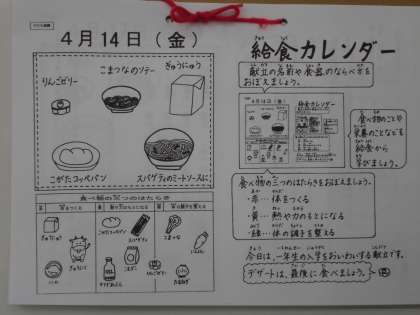 4月14日（金）
こまつなのソテー
ぎゅうにゅう
りんごゼリー
こがたコッペパン
スパゲティのミートソースに
食べ物の三つのはたらき
給食カレンダー
献立の名前や食器のならべ方を
おぼえましょう。
食べ物のことや
栄養のことなども
給食から
学びましょう。
食べ物の三つのはたらきをおぼえましょう。
・赤…体をつくる
・黄…熱や力のもとになる
・緑…体の調子を整える
今日は、一年生の入学をおいわいする献立です。
デザートは、最後に食べましょう。